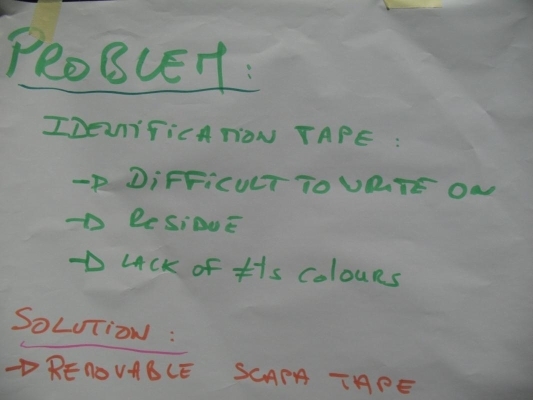 PROBLEM:
IDENTIFICATION TAPE:
→ DIFFICULT TO WRITE ON
→ RESIDUE
→ LACK OF ≠ts COLOURS
SOLUTION:
→ REMOVABLE SCAPA TAPE